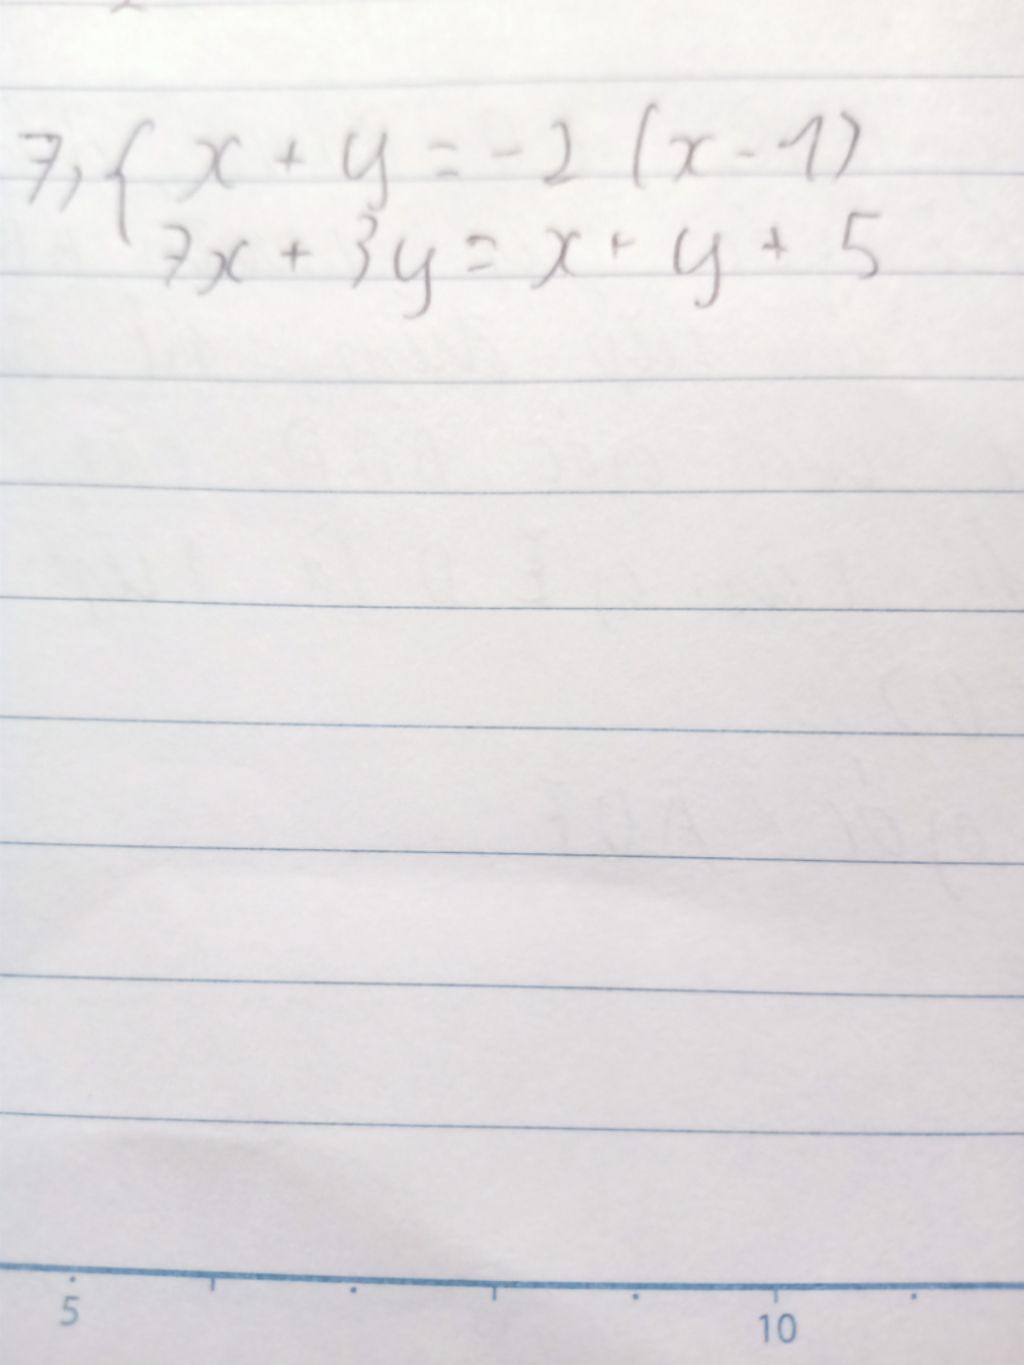 7, { x + y = -2 (x - 1)
7x + 3y = x + y + 5
5
10